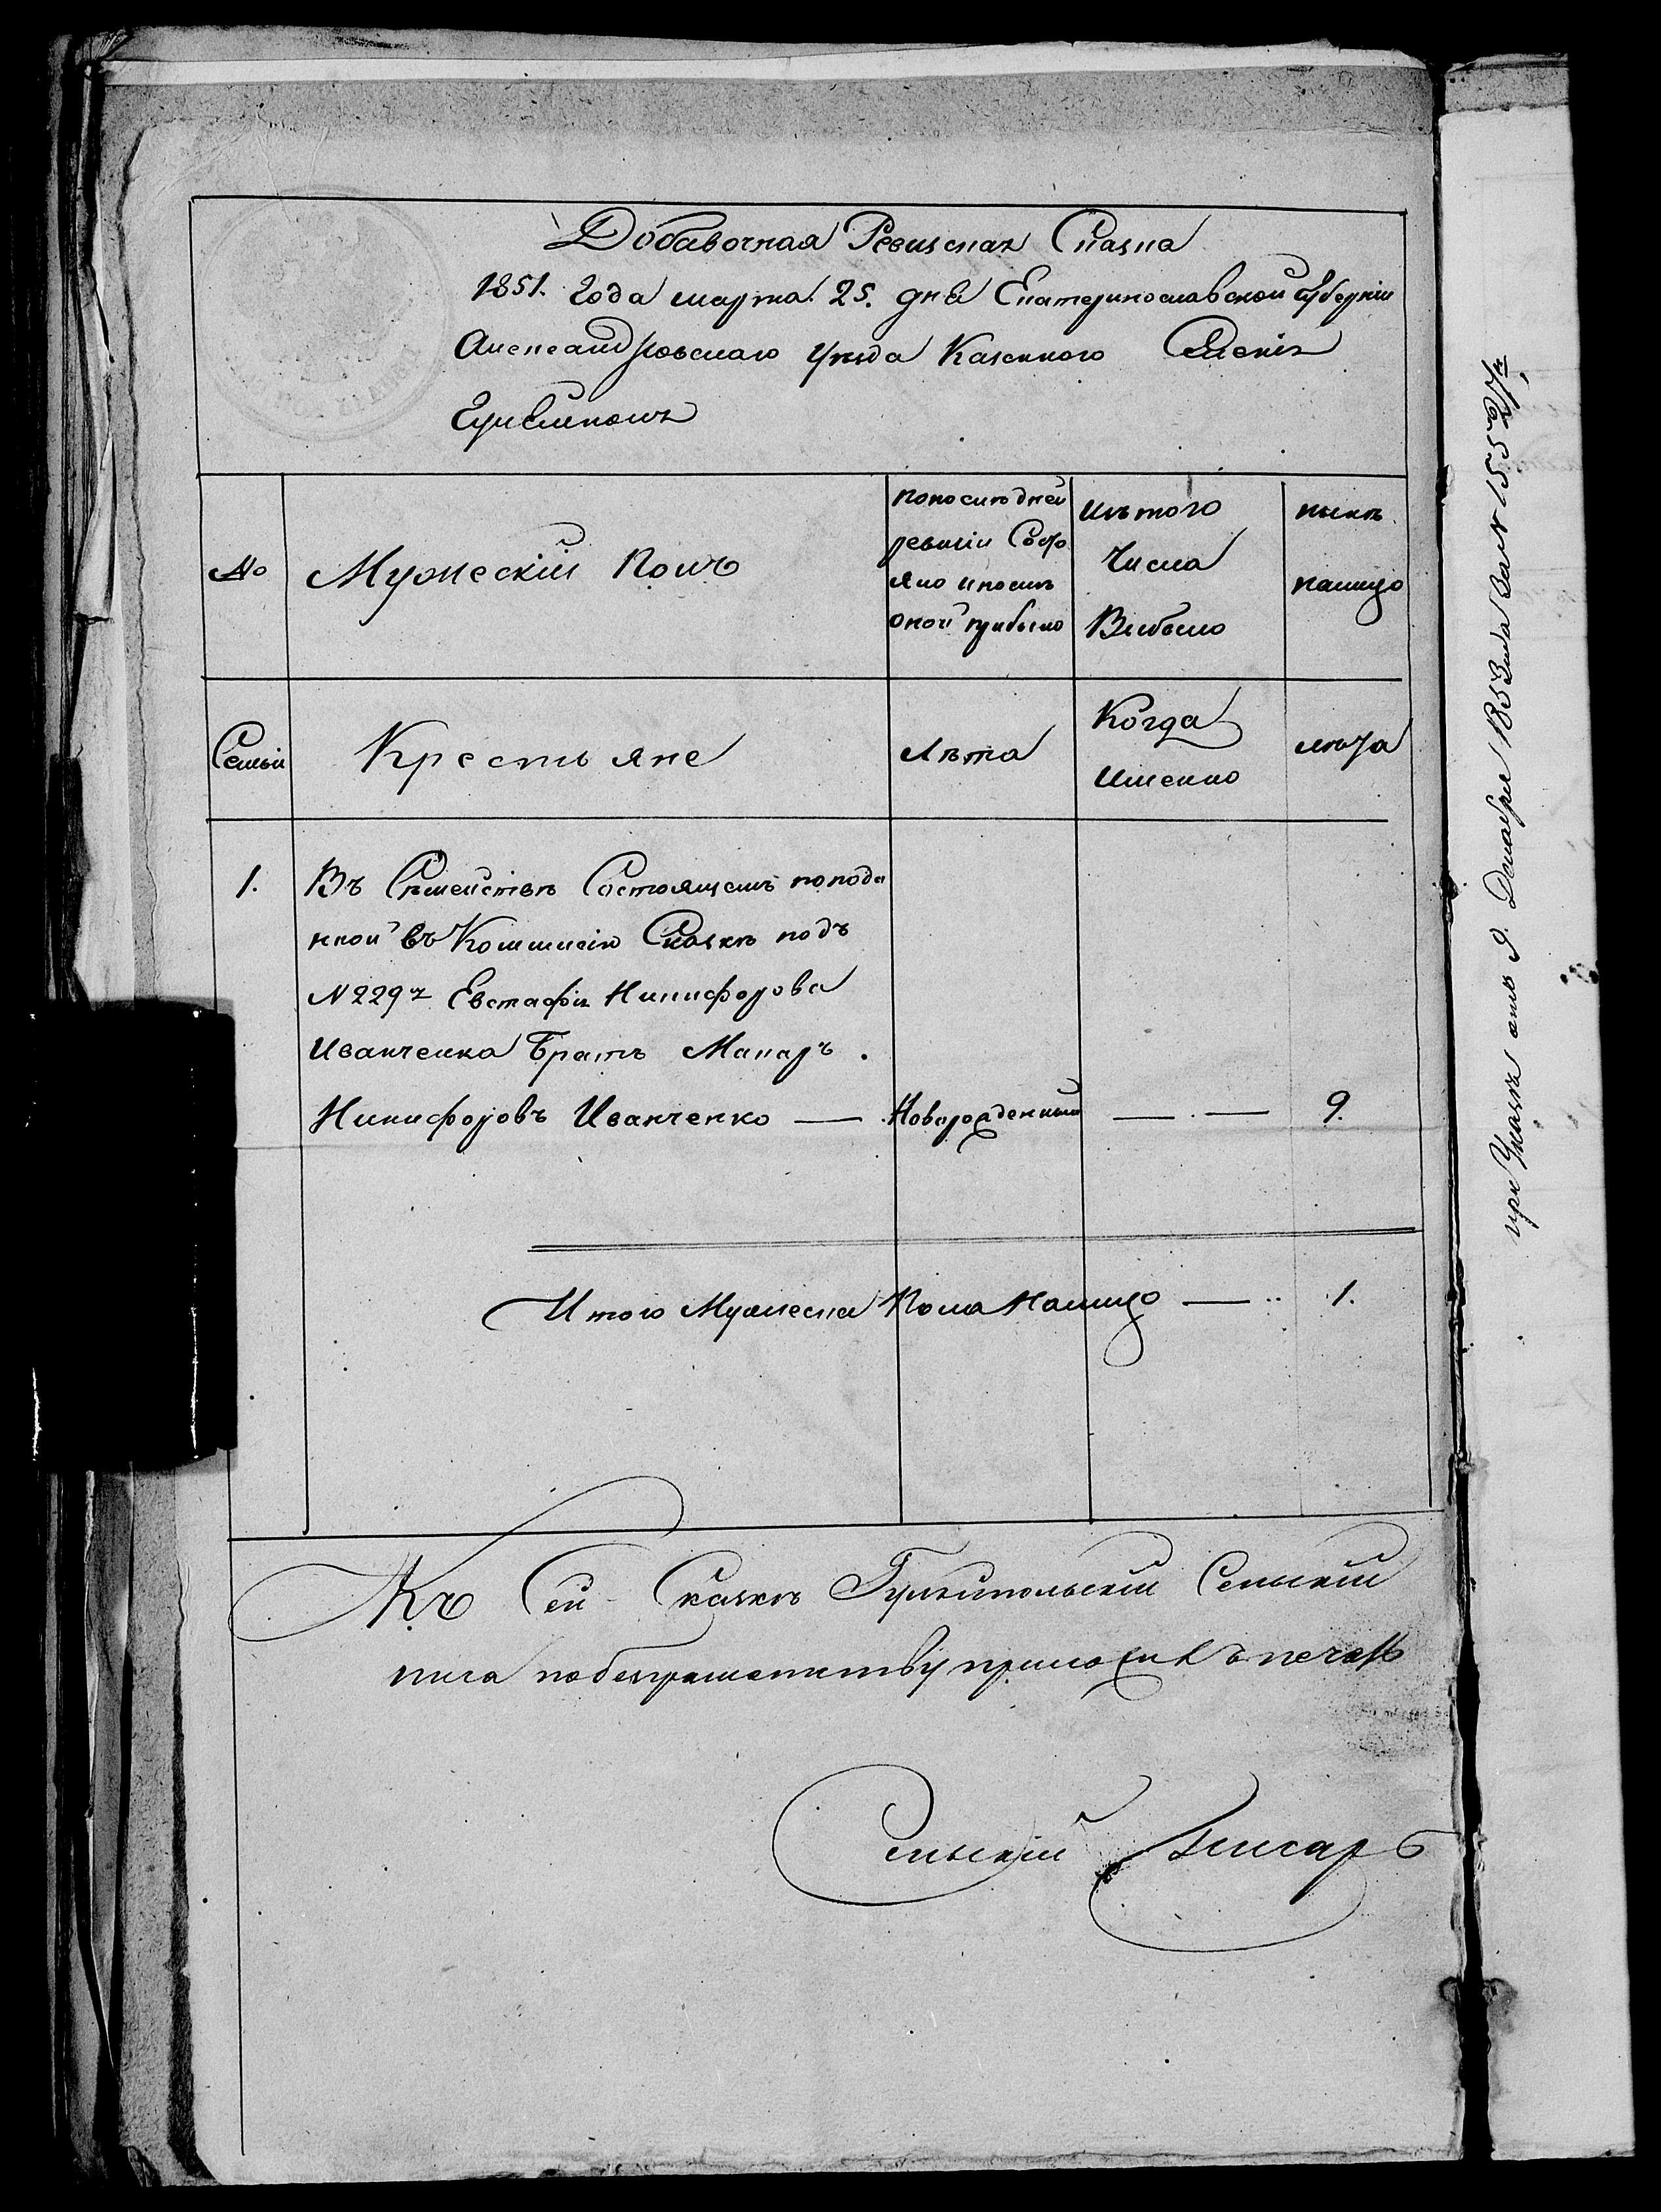 Добавочная Ревизская Сказка
1851. Года марта 25. дня Екатеринославской губерніи
Александровскаго уезда Казенного Селенія
Гуляйполя
№
Мужескій Полъ
по последней
ревизіи Состо
яло и после
оной прибыло
Изъ того
Числа
Выбыло
ныне
налицо
Семьи
Крестьяне
лѣта
Когда
именно
лѣта
1. Въ Семействѣ Состоящемъ по пода
нной въ Коммисію Сказкѣ подъ
N 229 Евстафія Никифорова
Иванченка Братъ Макаръ
Никифоровъ Иванченко — Новорожденный — — 9.
Итого Мужеска Пола Налицо — 1.
Къ Сей Сказкѣ Гуляйпольскій Сельскій
по безграмотству приложилъ печать
Сельскій Писарь
при Указѣ отъ 9. Декабря 1853 года за N 15527